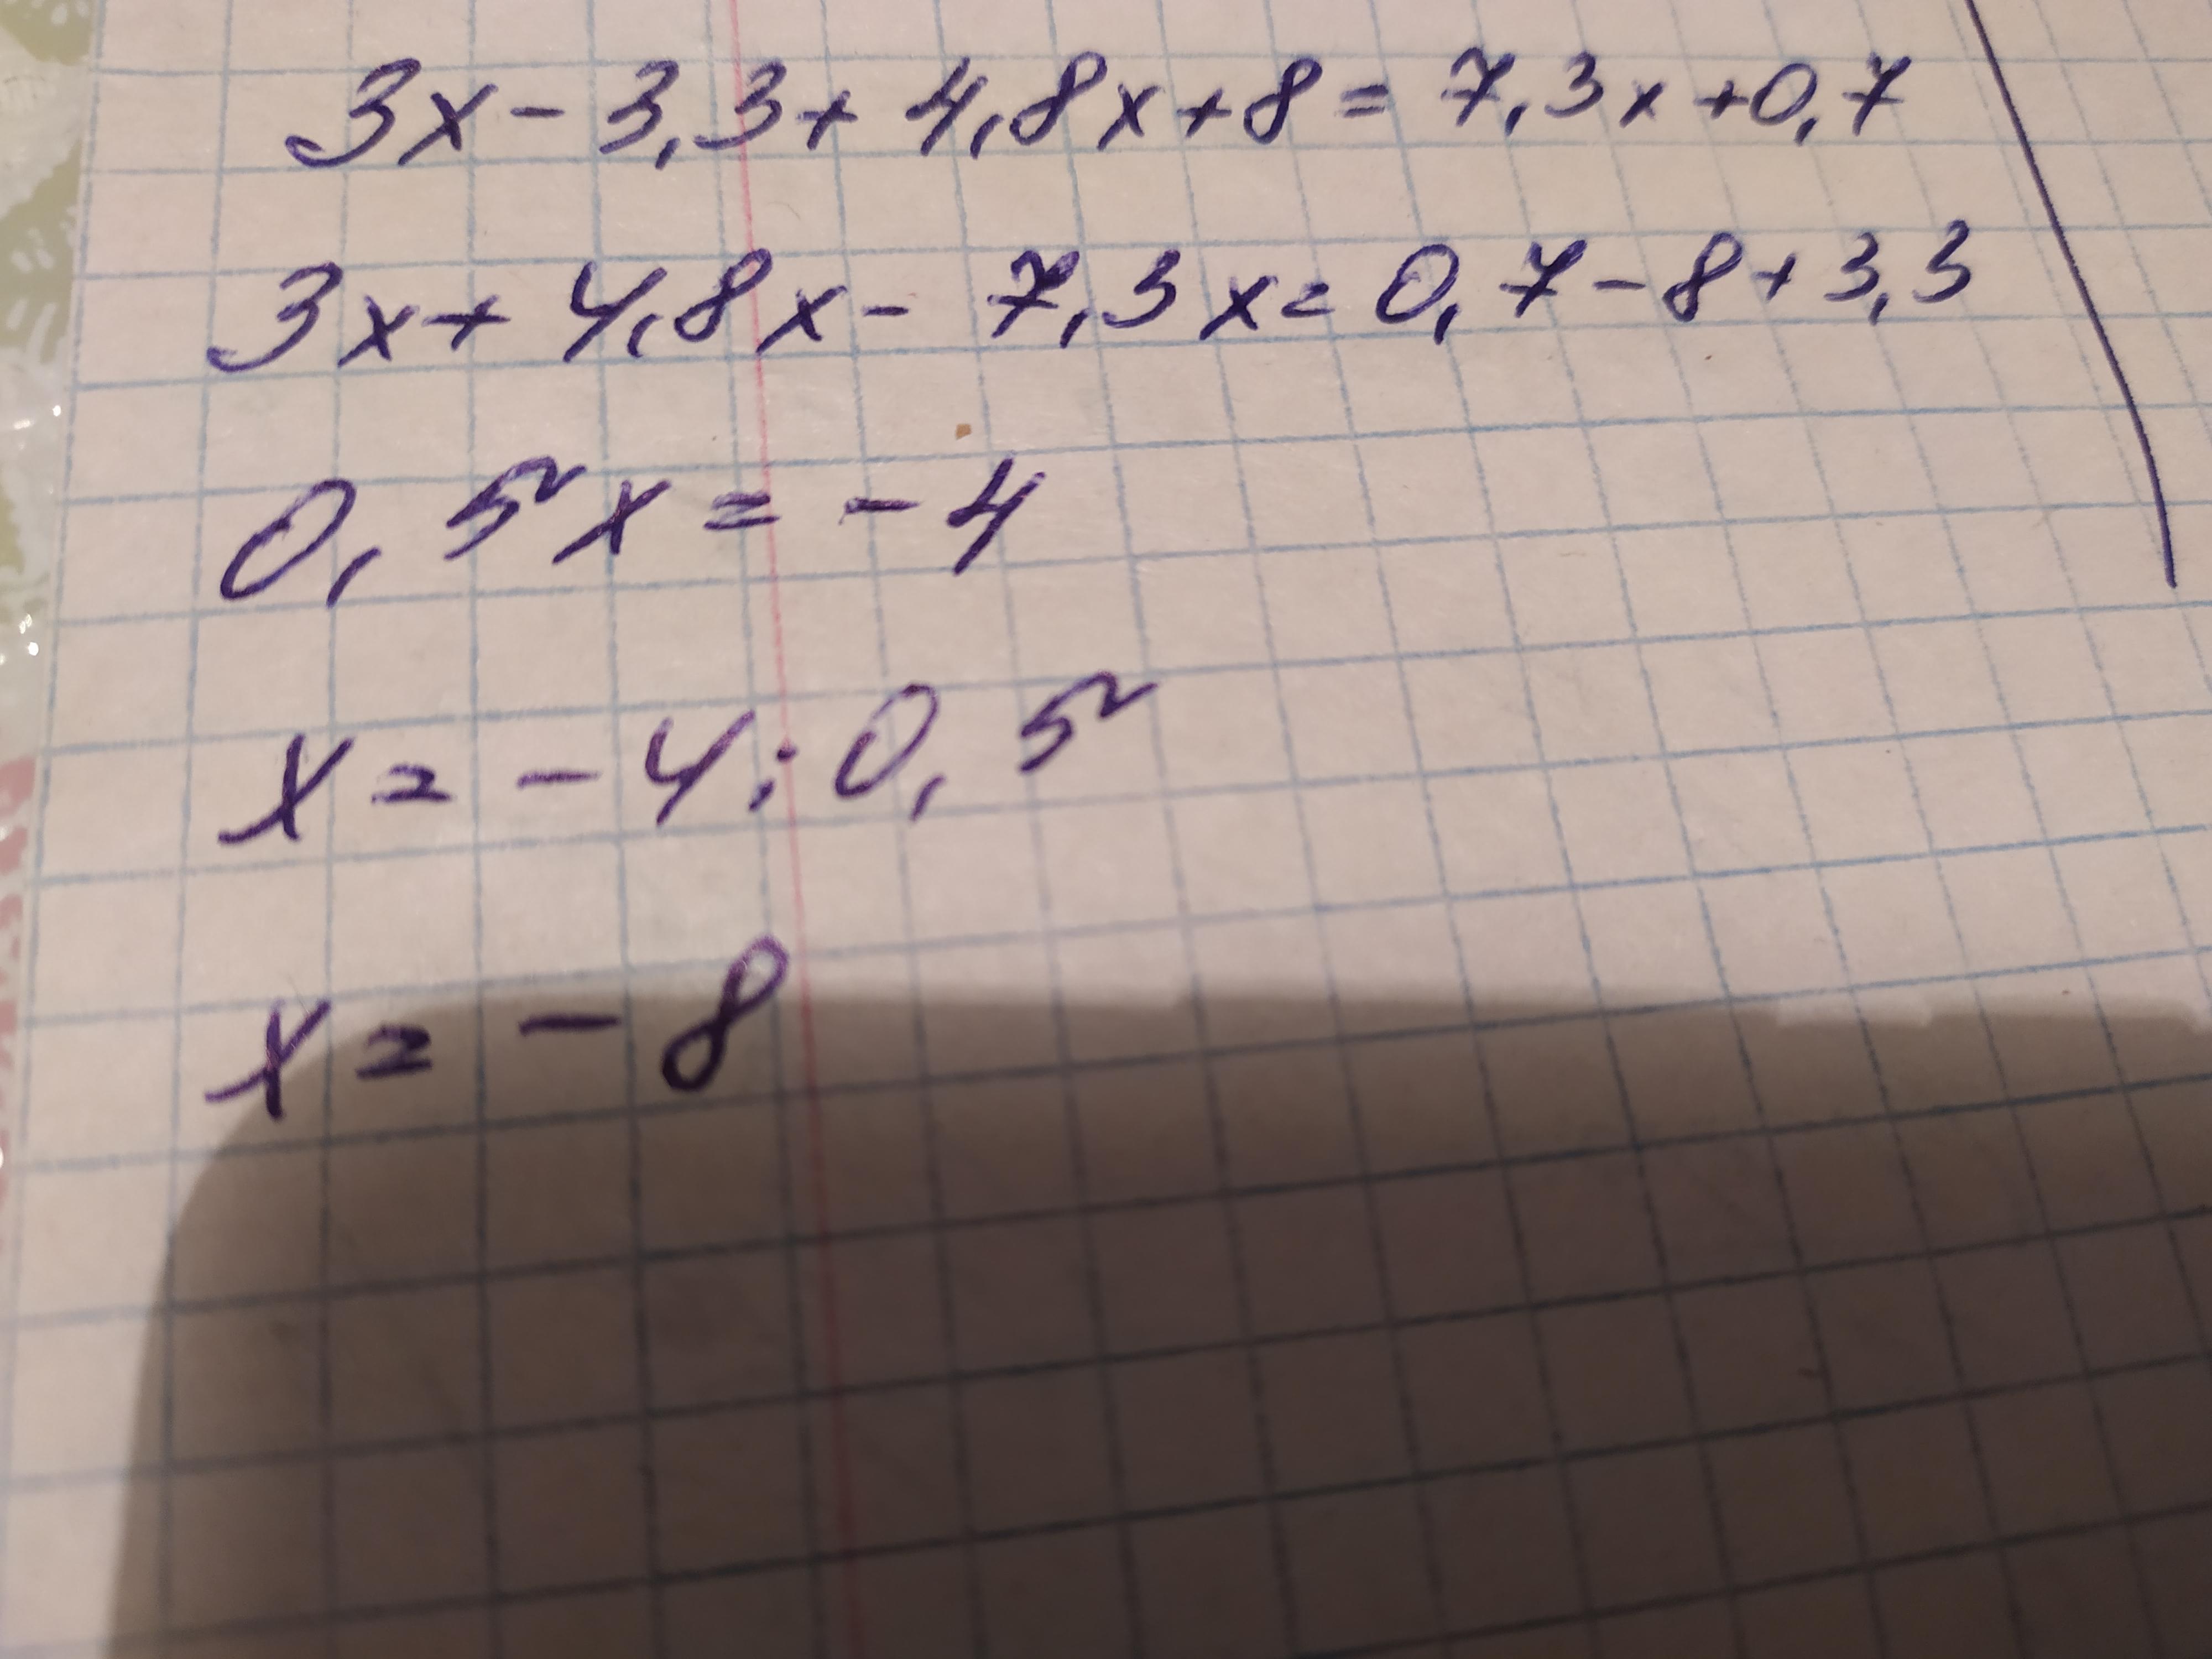 3x - 3,3 + 4,8x + 8 = 7,3x + 0,7
3x + 4,8x - 7,3x = 0,7 - 8 + 3,3
0,5x = - 4
x = - 4 : 0,5
x = - 8